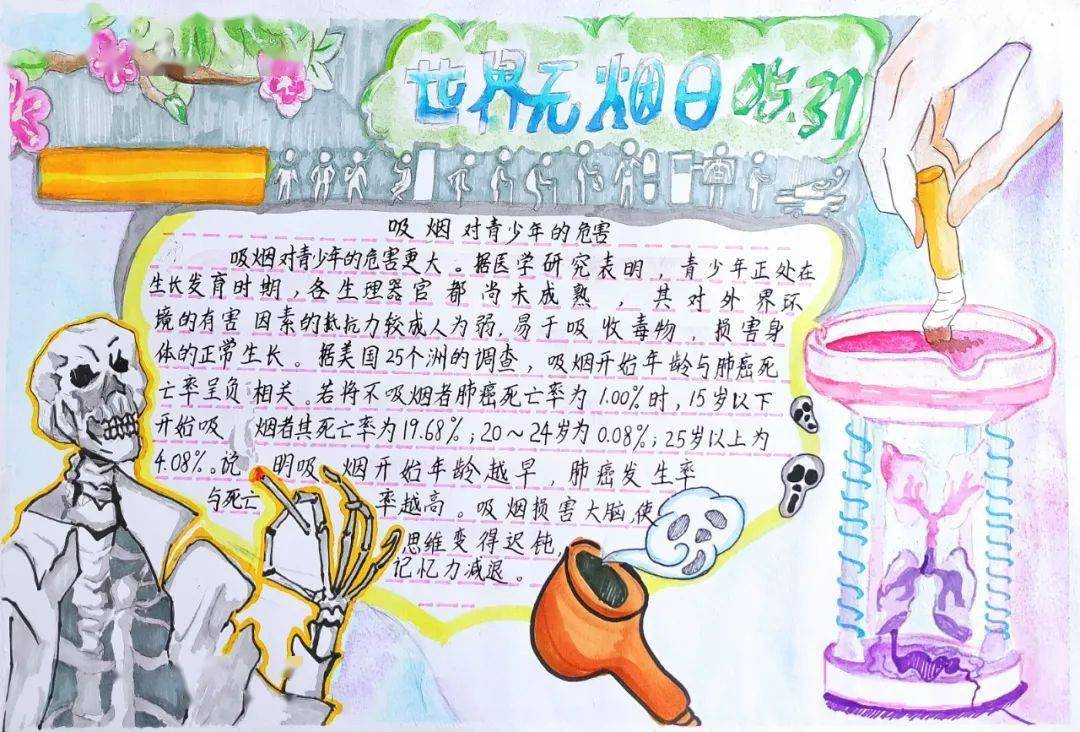 世界无烟日 05.31
吸烟对青少年的危害
吸烟对青少年的危害更大。据医学研究表明，青少年正处在
生长发育时期，各生理器官都尚未成熟，其对外界环
境的有害因素的抵抗力较成人为弱，易于吸收毒物，损害身
体的正常生长。据美国25个洲的调查，吸烟开始年龄与肺癌死
亡率呈负相关。若将不吸烟者肺癌死亡率为1.00%时，15岁以下
开始吸烟者其死亡率为19.68%；20～24岁为0.08%；25岁以上为
4.08%。说明吸烟开始年龄越早，肺癌发生率
与死亡率越高。吸烟损害大脑，使
思维变得迟钝，
记忆力减退。